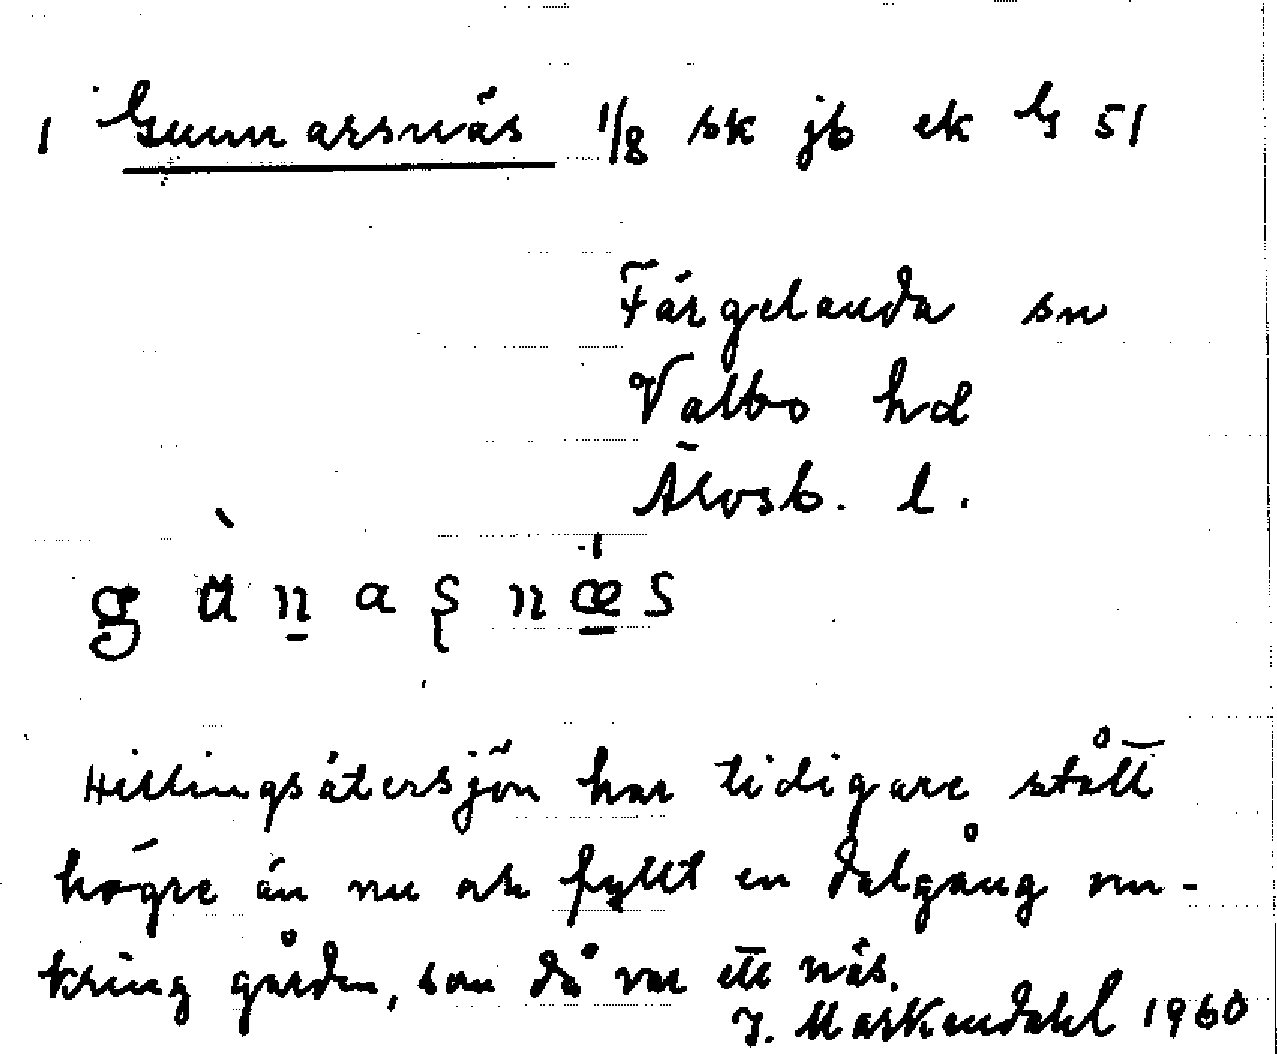 1 Gunnarsnäs 1/8 sk jb ek G 51
Färgelanda sn
Valbo hd
Älvsb. l.
Hillingsätersjön har tidigare stått
högre än nu och fyllt en dalgång om-
kring gården, som då var ett näs.
J. Markendahl 1960